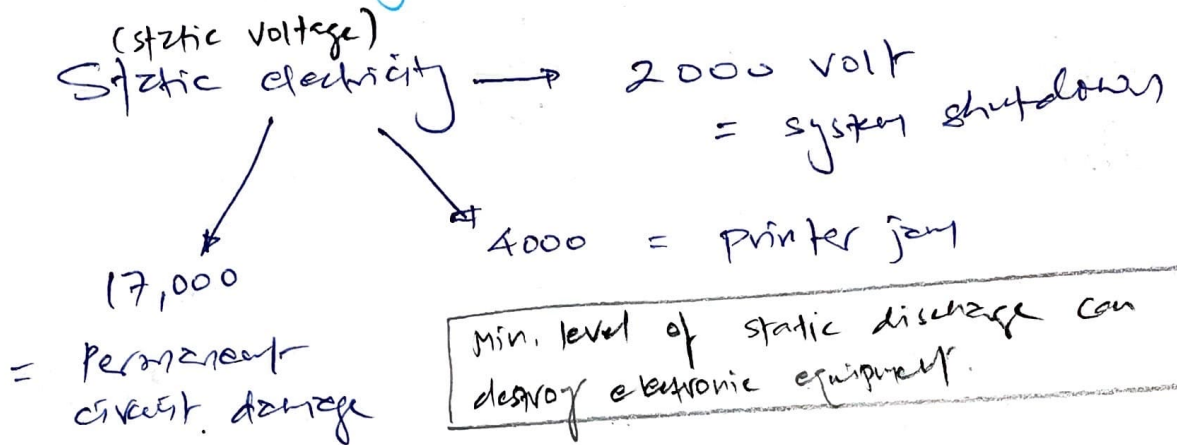 (static voltage)
Static electricity → 2000 volt
= system shutdown
4000 = printer jam
17,000
= Permanent
circuit damage
Min. level of static discharge can
destroy electronic equipment.